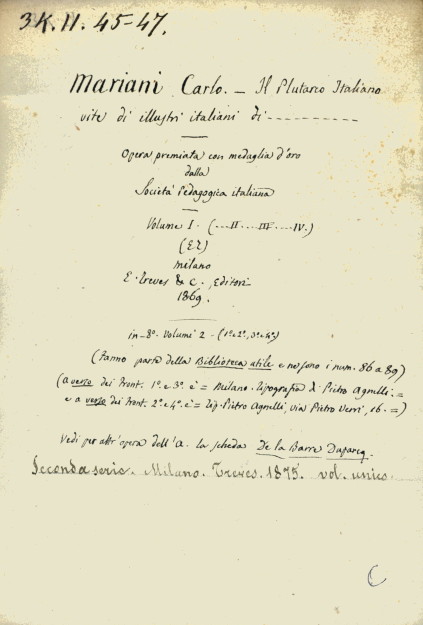 3K.II.45-47.
Mariani Carlo. – Il Plutarco Italiano
vite di illustri italiani di----------
Opera premiata con medaglia d'oro
dalla
Società Pedagogica italiana
Volume I. (...II...III...IV.)
(EL)
Milano
E. Treves & C., Editori
1869.
in-8º. Volumi 2 - (1º e 2º, 3º e 4º)
(Fanno parte della Biblioteca utile e ne sono i num. 86 a 89)
(a verso dei front. 1º e 3º. è = Milano. Tipografia di Pietro Agnelli. =
e a verso dei front. 2º e 4º. è = tip. Pietro Agnelli, via Pietro Verri, 16. =)
Vedi per altr'opera dell'A. la scheda De la Barre Duparcq.
Seconda serie. Milano. Treves. 1875. vol. unico.
C